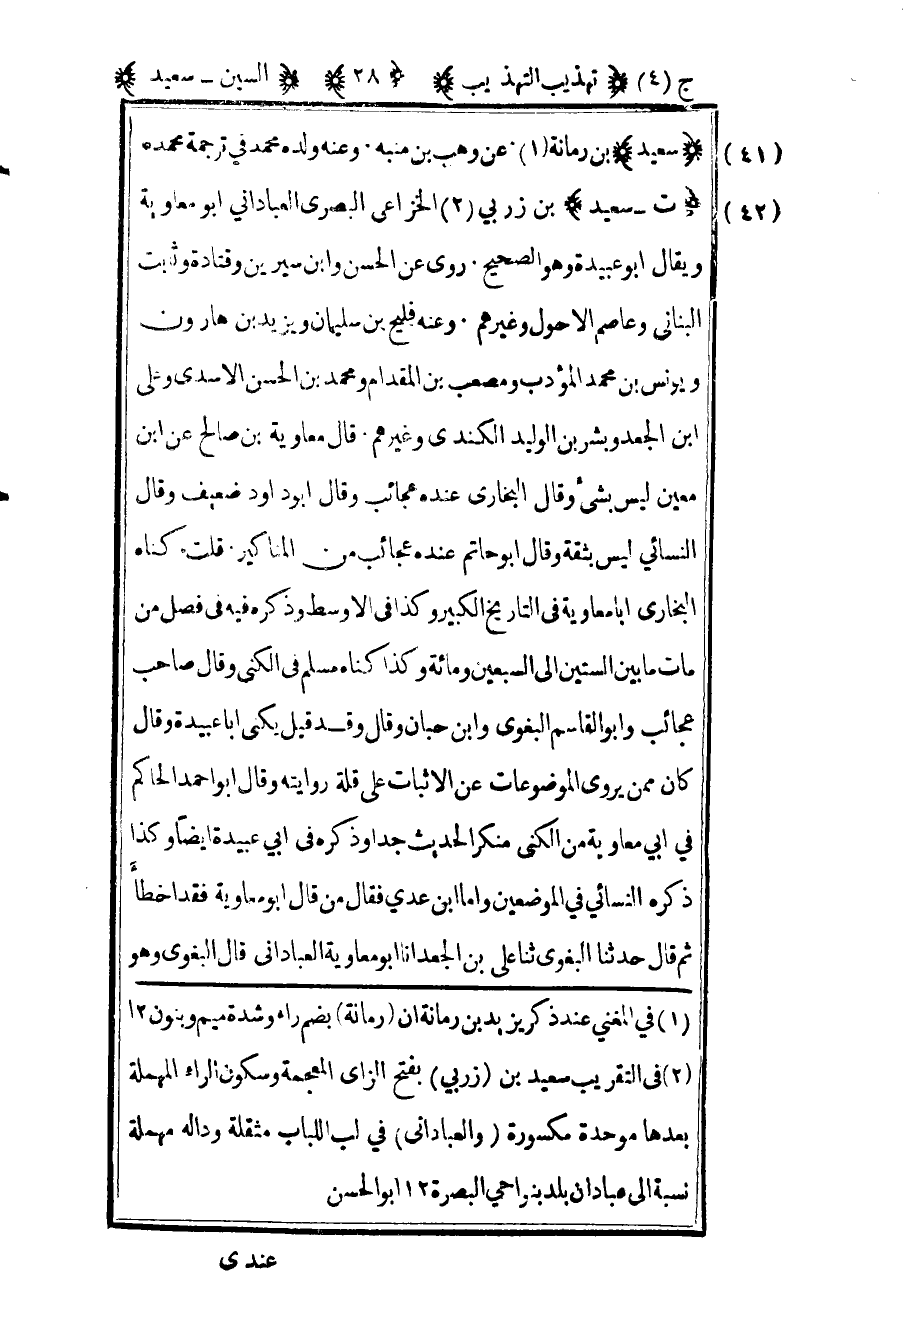 ج (٤) ﴿ تهذيب التهذيب ﴾ ﴿ ٢٨ ﴾ ﴿ السين ــ سعيد ﴾
(٤١) ﴿ سعيد ﴾ بن رمانة (١) ٠ عن وهب بن منبه ٠ وعنه ولده محمد في ترجمة محمده
(٤٢) ﴿ ت ــ سعيد ﴾ بن زربي (٢) الخزاعى البصرى العباداني ابو معاوية
ويقال ابوعبيدة وهو الصحيح ٠ روى عن الحسن وابن سيرين وقتادة وثابت
البنانى وعاصم الاحول وغيرهم ٠ وعنه فليح بن سليمان ويزيد بن هارون
ويونس بن محمد المؤدب ومصعب بن المقدام ومحمد بن الحسن الاسدى وعلى
ابن الجعد وبشر بن الوليد الكندى وغيرهم ٠ قال معاوية بن صالح عن ابن
معين ليس بشئ وقال البخارى عنده عجائب وقال ابو داود ضعيف وقال
النسائي ليس بثقة وقال ابوحاتم عنده عجائب من المناكير ٠ قلت ٠ كناه
البخارى ابا معاوية فى التاريخ الكبير وكذا فى الاوسط وذكره فيه فى فصل من
مات ما بين الستين الى السبعين ومائة وكذا كناه مسلم فى الكنى وقال صاحب
عجائب وابو القاسم البغوى وابن حبان وقال وقد قيل يكنى ابا عبيدة وقال
كان ممن يروى الموضوعات عن الاثبات على قلة روايته وقال ابو احمد الحاكم
في ابي معاوية من الكنى منكر الحديث جدا وذكره فى ابي عبيدة ايضاً وكذا
ذكره النسائي في الموضعين واما ابن عدي فقال من قال ابو معاوية فقد اخطأ
ثم قال حدثنا البغوى ثنا على بن الجعد انا ابو معاوية العبادانى قال البغوى وهو
(١) في المغني عند ذكر يزيد بن رمانة ان (رمانة) بضم راء وشدة ميم وبنون ١٢
(٢) فى التقريب سعيد بن (زربي) بفتح الزاى المعجمة وسكون الراء المهملة
بعدها موحدة مكسورة (والعبادانى) في لب اللباب مثقلة وداله مهملة
نسبة الى عبادان بلد بنواحي البصرة ١٢ ابو الحسن
عندى